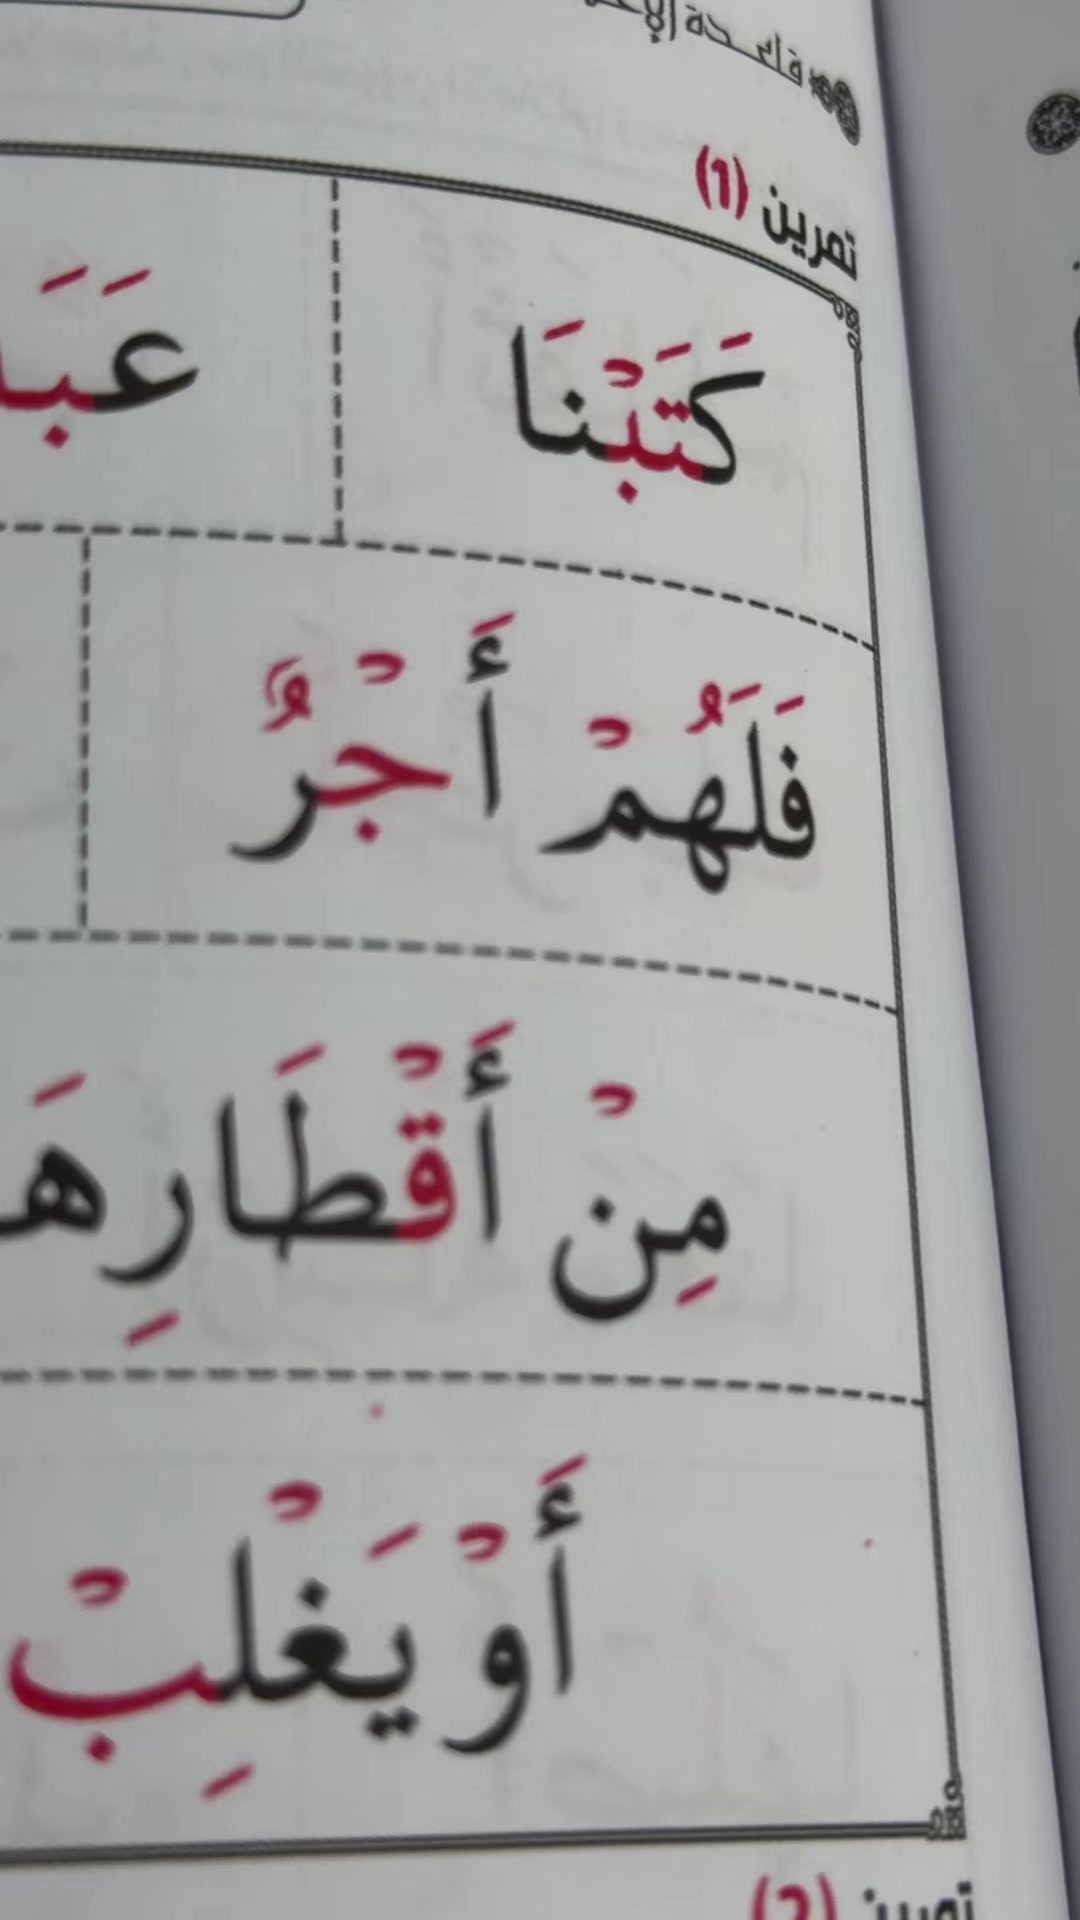 قاعدة
تمرين (1)
كَتَبْنَا
فَلَهُمْ أَجْرٌ
مِنْ أَقْطَارِهَ
أَوْ يَغْلِبْ
تمرين (2)